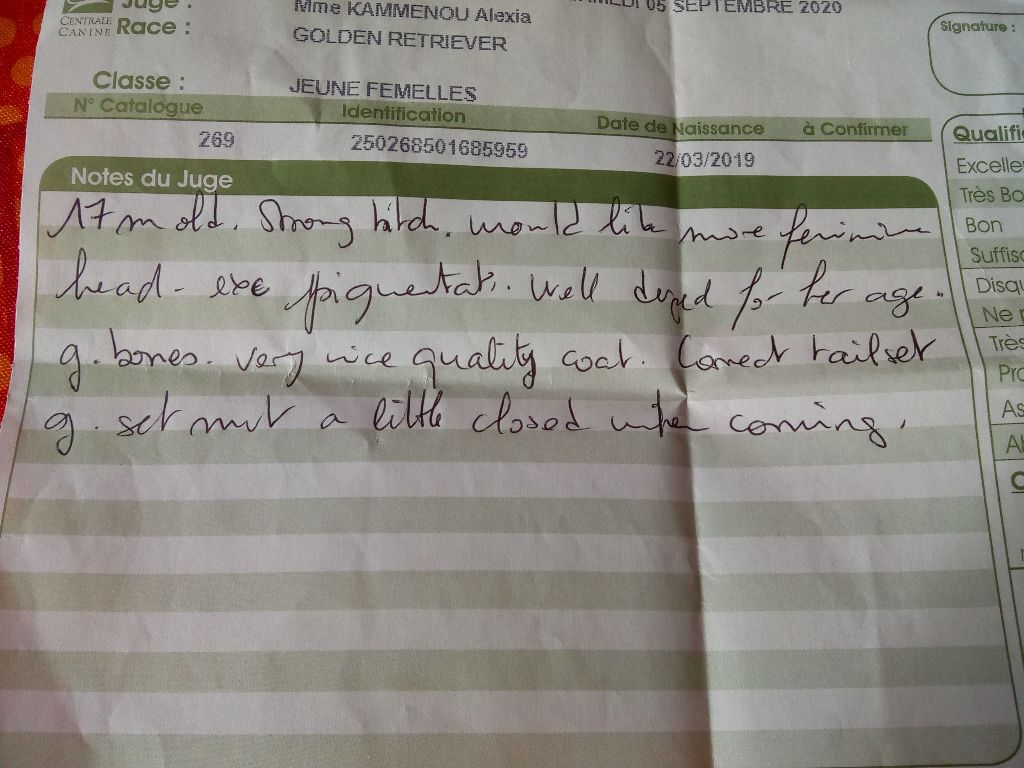 Juge : Mme KAMMENOU Alexia
SAMEDI 05 SEPTEMBRE 2020
CENTRALE
CANINE
Race : GOLDEN RETRIEVER
Signature :
Classe : JEUNE FEMELLES
N° Catalogue Identification Date de Naissance à Confirmer
269 250268501685959 22/03/2019
Notes du Juge
17 m old. Strong bitch. would like more feminine
head - exc pigmentat°. Well for her age.
g. bones. very nice quality coat. Correct tailset
g. set mvt a little closed when coming.
Qualific
Excelle
Très Bo
Bon
Suffisa
Disqu
Ne
Très
Pro
As